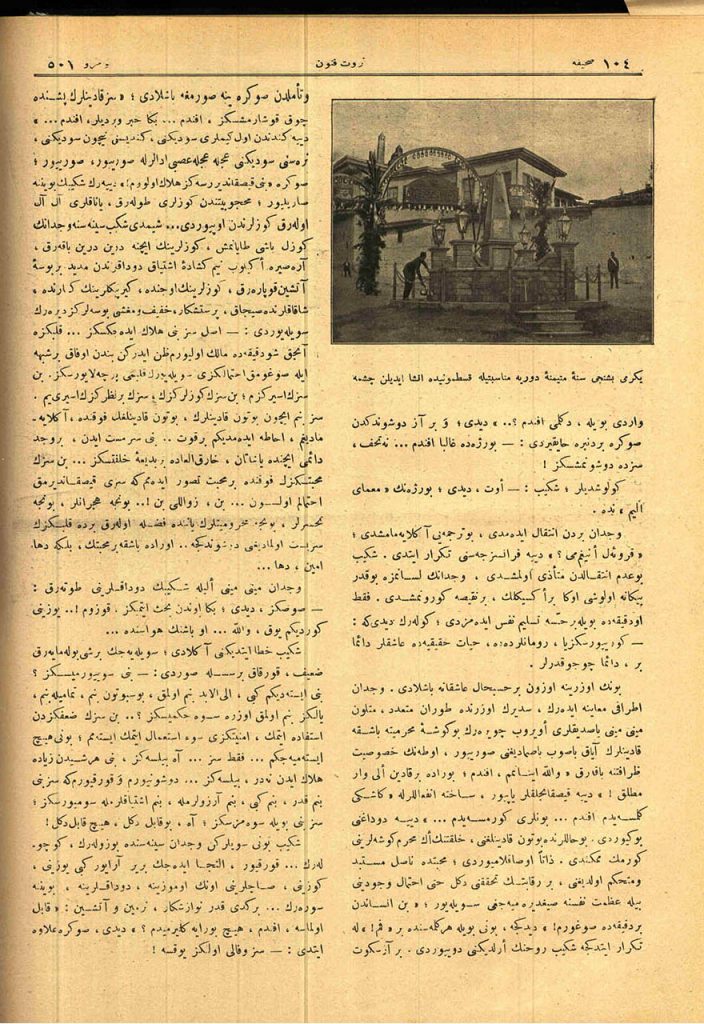 صحیفه ١٠٤
ثروت فنون
نومرو ٥٠١
یكرمی بشنجی سنهٔ متیمنهٔ دوریه مناسبتیله قسطمونیده انشا ایدیلن چشمه
واردی بویله ، دكلمی افندم ؟.. » دیدی ؛ و بر آز دوشوندكدن
صوكره بردنبره حایقیردی : — بورژه‌ده غالبا افندم ... نه‌تحف ،
سزده دوشونمشسكز !
كولوشدیلر ؛ شكیب : — أوت ، دیدی ؛ بورژه‌نك « معمای
الیم » نده .
وجدان بردن انتقال ایده‌مدی ، بوترجمه‌یی آكلایه‌مامشدی ؛
دیه فرانسزجه‌سنی تكرار ایتدی . شكیب
بوعدم انتقالدن متأذی اولمشدی . وجدانك لسانمزه بوقدر
بیكانه اولوشی اوكا برأكسیكلك ، برنقیصه كورونمشدی . فقط
اودقیقه‌ده بویله برحسّه تسلیم نفس ایده‌مزدی ؛ كوله‌رك دیدی‌كه :
— كوریورسكزیا ، رومانلرده‌ده ، حیات حقیقیه‌ده عاشقلر دائما
بر ، دائما چوجوقدرلر .
بونك اوزرینه اوزون برحسبحال عاشقانه باشلادی . وجدان
اطرافی معاینه ایده‌رك ، سدیرك اوزرنده طوران متعدد ، متلون
مینی مینی یاصدیقلری أویروب چویره‌رك بوكوشهٔ محرمیته باشقه
قادینلرك آیاق باصوب باصمادیغنی صوریور ، اوطه‌نك خصوصیت
ظرافتنه باقارق « والله اینانمام ، افندم ؛ بوراده برقادین ألی وار
مطلق ! » دیه قیصقانجلقلر یاپیور ، ساخته انفعاللرله « كاشكی
كلمسه‌یدم افندم ... بونلری كورمسه‌یدم ... » دییه دوداغنی
بوكیوردی . بوحاللرنده بوتون قادینلغی ، خلقتنك أك محرم كوشه‌لرینی
كورمك ممكندی . ذاتاً اوصافلامیوردی ؛ محبتده ناصل مستبد
ومتحكم اولدیغنی ، بر رقابتك تحققنی دكل حتی احتمال وجودینی
بیله عظمت نفسنه صیغدیره‌میه‌جكنی سویله‌یور ؛ « بن انساندن
بردقیقه‌ده صوغورم! » دیدكجه ، بونی بویله هركلمه‌سنده بر « قم! » له
تكرار ایتدكجه شكیب روحنك أزلدیكنی دوییوردی . بر آز سكوت
وتأملدن صوكره ینه صورمغه باشلادی ؛ « سزقادینلرك پشنده
چوق قوشارمشسكز ، افندم ... بكا خبر ویردیلر ، افندم ... »
دییه كندندن اول كیملری سودیكنی ، كندیسنی نیچون سودیكنی ،
نره‌سنی سودیكنی عجله عجله عصبی ادالرله صورییور، صورییور ؛
صوكره « بنی قیصقاندیررسه‌كز هلاك اولورم! » دییه‌رك شكیبك بویننه
صاریلیور ؛ محجوبیتندن كوزلری طوله‌رق ، یاناقلری آل آل
اوله‌رق كوزلرندن اوپیوردی... شیمدی شكیب سینه‌سنه وجدانك
كوزل باشی طایانمش ، كوزلرینك ایچنه درین درین باقه‌رق ،
آره‌صیره أكیلوب نیم كشادهٔ اشتیاق دوداقلرندن مدید بربوسهٔ
آتشین قوپاره‌رق ، كوزلرینك اوجنده ، كیرپكلرینك كنارنده ،
شاقاقلرنده صیجاق ، پرستشكار، خفیف ومغشی بوسه‌لر كزدیره‌رك
سویله‌یوردی : — اصل سز بنی هلاك ایده‌جكسكز ... قلبكزه
آنجق شودقیقه‌ده مالك اولیورم ظن ایدركن بندن اوفاق برشبهه
ایله صوغومق احتمالكزی سویله‌یه‌رك قلبمی پرچه‌لایورسكز . بن
سزك اسیركزم ؛ بن سزك كوزلركزك ، سزك برنظركزك اسیری‌یم .
سز بنم ایچون بوتون قادینلرك ، بوتون قادینلغك فوقنده ، آكلایه‌ـ
مادیغم ، احاطه ایده‌مدیكم برقوت .. بنی سرمست ایدن ، بروجد
دائمی ایچنده یاشاتان ، خارق‌العاده بربدیعهٔ خلقتسكز ... بن سزك
محبتكزك فوقنده برمحبت تصور ایده‌مم‌كه سزی قیصقاندیرمق
احتمالم اولسون ... بن ، زواللی بن !.. بونجه هجرانلر ، بونجه
تحسرلر ، بونجه محرومیتلرك یاننده فضله اوله‌رق برده قلبكزك
سربست اولمادیغنی دوشوندكجه .. اوراده باشقه برمحبتك ، بلكه دها
امین ، دها ...
وجدان مینی مینی ألیله شكیبك دوداقلرینی طوته‌رق :
— صوصكز ، دیدی ؛ بكا اوندن بحث ایتمیكز . قوزوم !.. یوزینی
كوردیكم یوق ، والله ... او باشنك هواسنده ...
شكیب خطا ایتدیكنی آكلادی ؛ سویله‌یه‌جك برشی بوله‌مایه‌رق
ضعیف ، قورقاق برسسله صوردی : — بنی سویورمیسكز ؟
بنی ایسته‌دیكم كبی ، الی‌الابد بنم اولمق ، بوسبوتون بنم ، تمامیله بنم ،
یالكز بنم اولمق اوزره سوه‌جكمیسكز ؟.. بن سزك ضعفكزدن
استفاده ایتمك ، امنیتكزی سوء استعمال ایتمك ایسته‌مم ؛ بونی هیچ
ایسته‌میه‌جكم ... فقط سز ... آه بیلسه‌كز ، بنی هرشیدن زیاده
هلاك ایدن نه‌در ، بیلسه‌كز ... دوشونیورم و قورقیورم‌كه سز بنی
بنم قدر ، بنم كبی ، بنم آرزولرمله ، بنم اشتیاقلرمله سومیورسكز ؛
سز بنی بویله سوه‌مزسكز ؛ آه ، بوقابل دكل ، هیچ قابل‌دكل !
شكیب بونی سویلركن وجدان سینه‌سنده بوزوله‌رك ، كوچوـ
له‌رك ... قورقیور ، التجا ایده‌جك بریر آرایور كبی یوزینی ،
كوزینی ، صاچلرینی اونك اوموزینه ، دوداقلرینه ، بویننه
سوره‌رك ... بركدی قدر نوازشكار ، نرمین و آتشین : « قابل
اولماسه ، افندم ، هیچ بورایه كلیرمیدم ؟ » دیدی ، صوكره علاوه
ایتدی : — سز وفالی اولكز یوقسه !